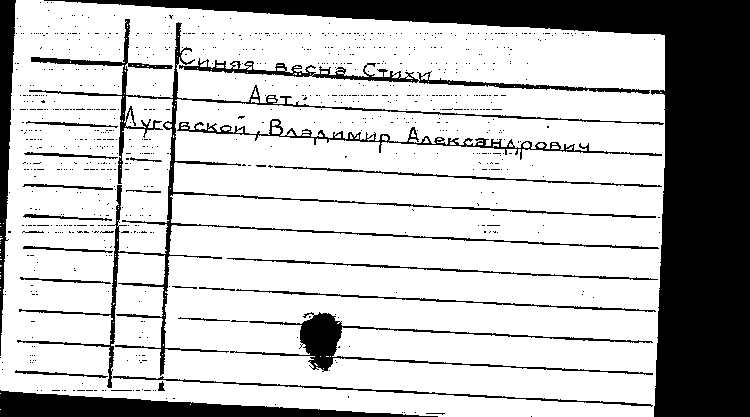 Синяя весна Стихи
Авт.:
Луговской, Владимир Александрович